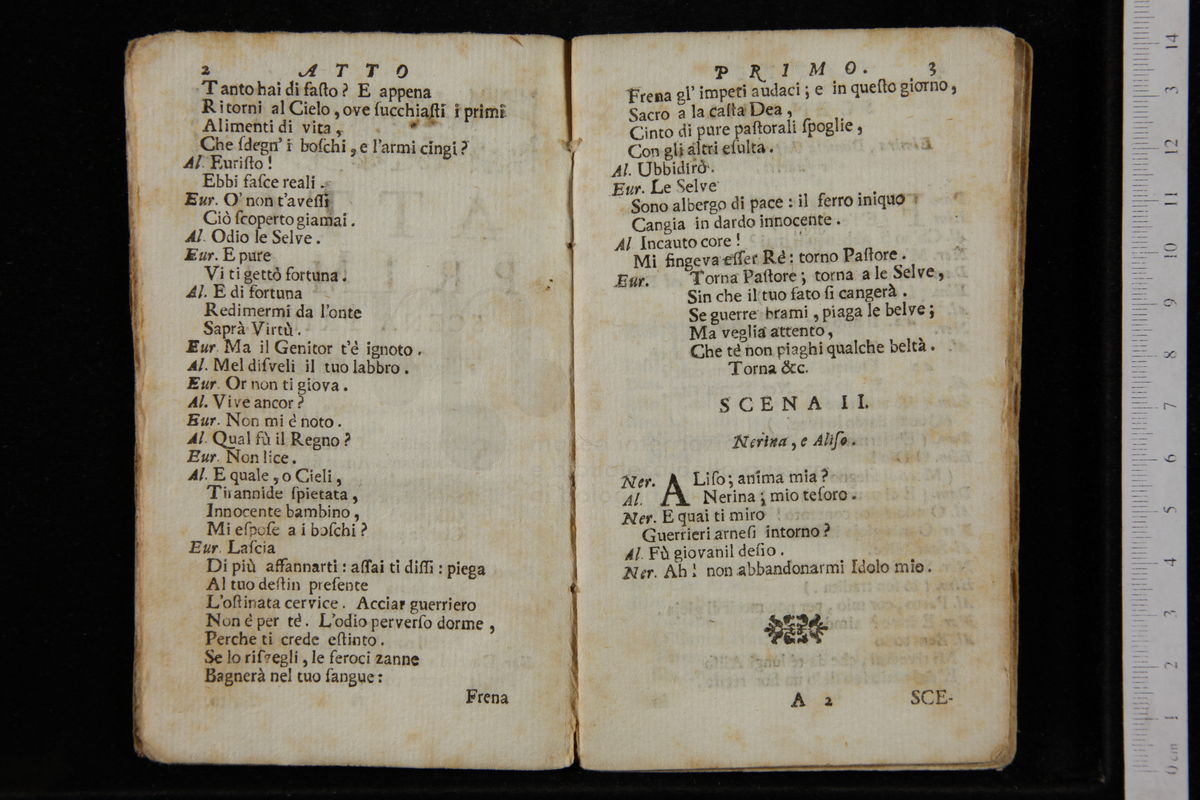 2 ATTO
Tanto hai di faſto? E appena
Ritorni al Cielo, ove ſucchiaſti i primi
Alimenti di vita,
Che ſdegn' i boſchi, e l'armi cingi?
Al. Euriſto!
Ebbi faſce reali.
Eur. O' non t'aveſſi
Ciò ſcoperto giamai.
Al. Odio le Selve.
Eur. E pure
Vi ti gettò fortuna.
Al. E di fortuna
Redimermi da l'onte
Saprà Virtù.
Eur. Ma il Genitor t'é ignoto.
Al. Mel diſveli il tuo labbro.
Eur. Or non ti giova.
Al. Vive ancor?
Eur. Non mi é noto.
Al. Qual fù il Regno?
Eur. Non lice.
Al. E quale, o Cieli,
Tirannide ſpietata,
Innocente bambino,
Mi eſpoſe a i boſchi?
Eur. Laſcia
Di più affannarti: aſſai ti diſſi: piega
Al tuo deſtin preſente
L'oſtinata cervice. Acciar guerriero
Non é per tè. L'odio perverſo dorme,
Perche ti crede eſtinto.
Se lo riſvegli, le feroci zanne
Bagnerà nel tuo ſangue:
Frena
PRIMO. 3
Frena gl' impeti audaci; e in queſto giorno,
Sacro a la caſta Dea,
Cinto di pure paſtorali ſpoglie,
Con gli altri eſulta.
Al. Ubbidirò.
Eur. Le Selve
Sono albergo di pace: il ferro iniquo
Cangia in dardo innocente.
Al Incauto core!
Mi fingeva eſſer Rè: torno Paſtore.
Eur. Torna Paſtore; torna a le Selve,
Sin che il tuo fato ſi cangerà.
Se guerre brami, piaga le belve;
Ma veglia attento,
Che tè non piaghi qualche beltà.
Torna &c.
SCENA II.
Nerina, e Aliſo.
Ner. ALiſo; anima mia?
Al. Nerina; mio teſoro.
Ner. E quai ti miro
Guerrieri arneſi intorno?
Al. Fù giovanil deſio.
Ner. Ah! non abbandonarmi Idolo mio.
A 2 SCE-